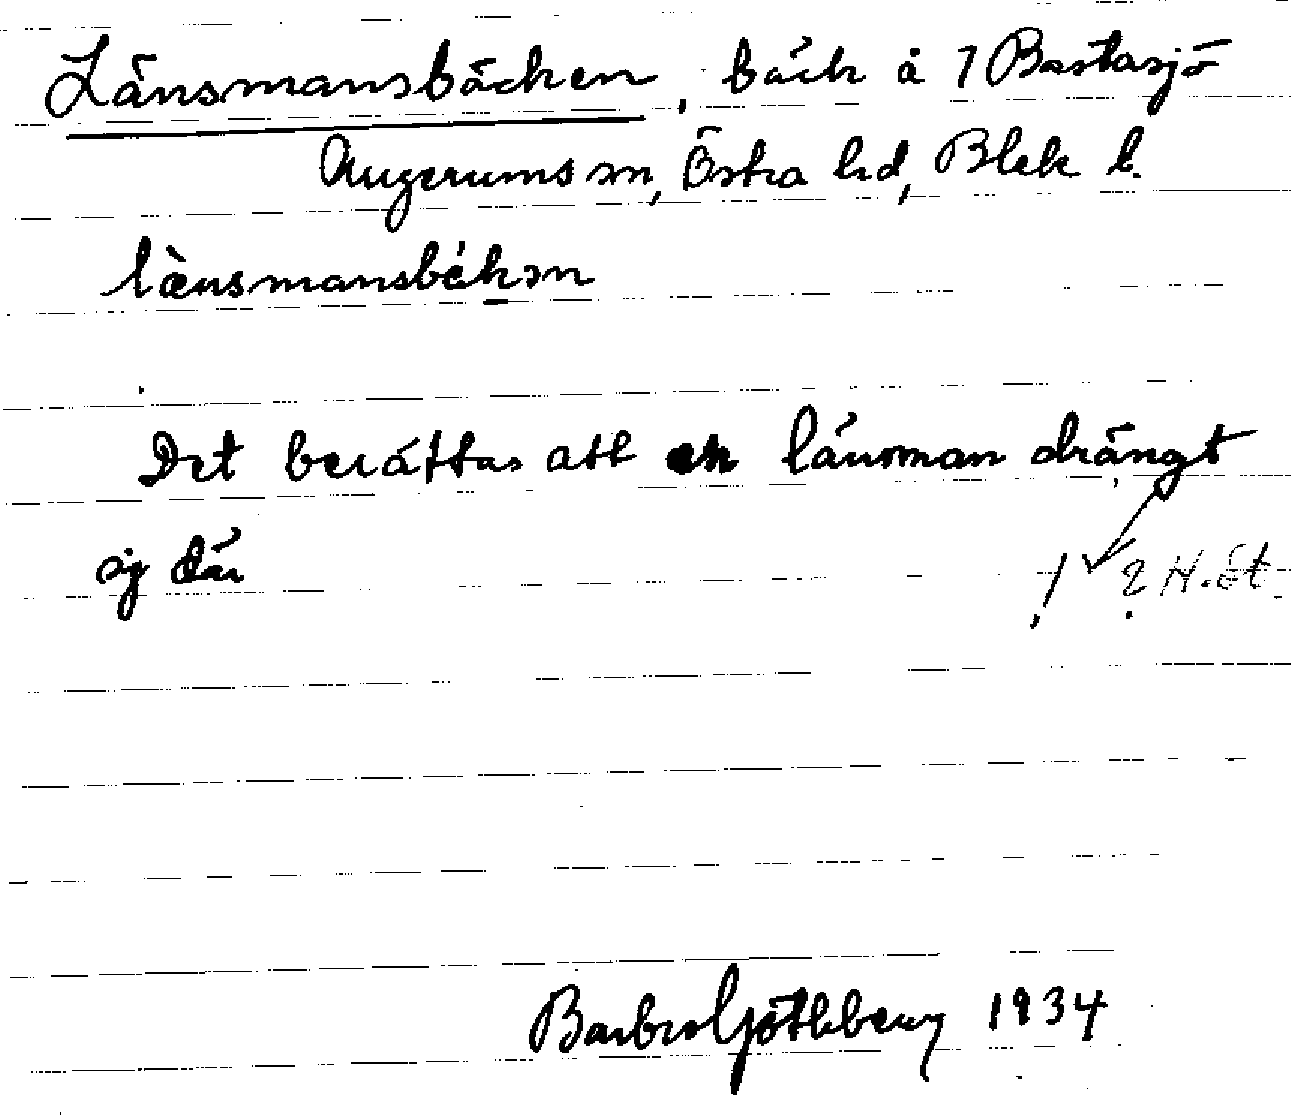 Länsmansbäcken, bäck å 7 Bastasjö
Augerums sn, Östra hd, Blek l.
lænsmansbäkən
Det berättas att en länsman drängt
sig där
Barbro Göthberg 1934